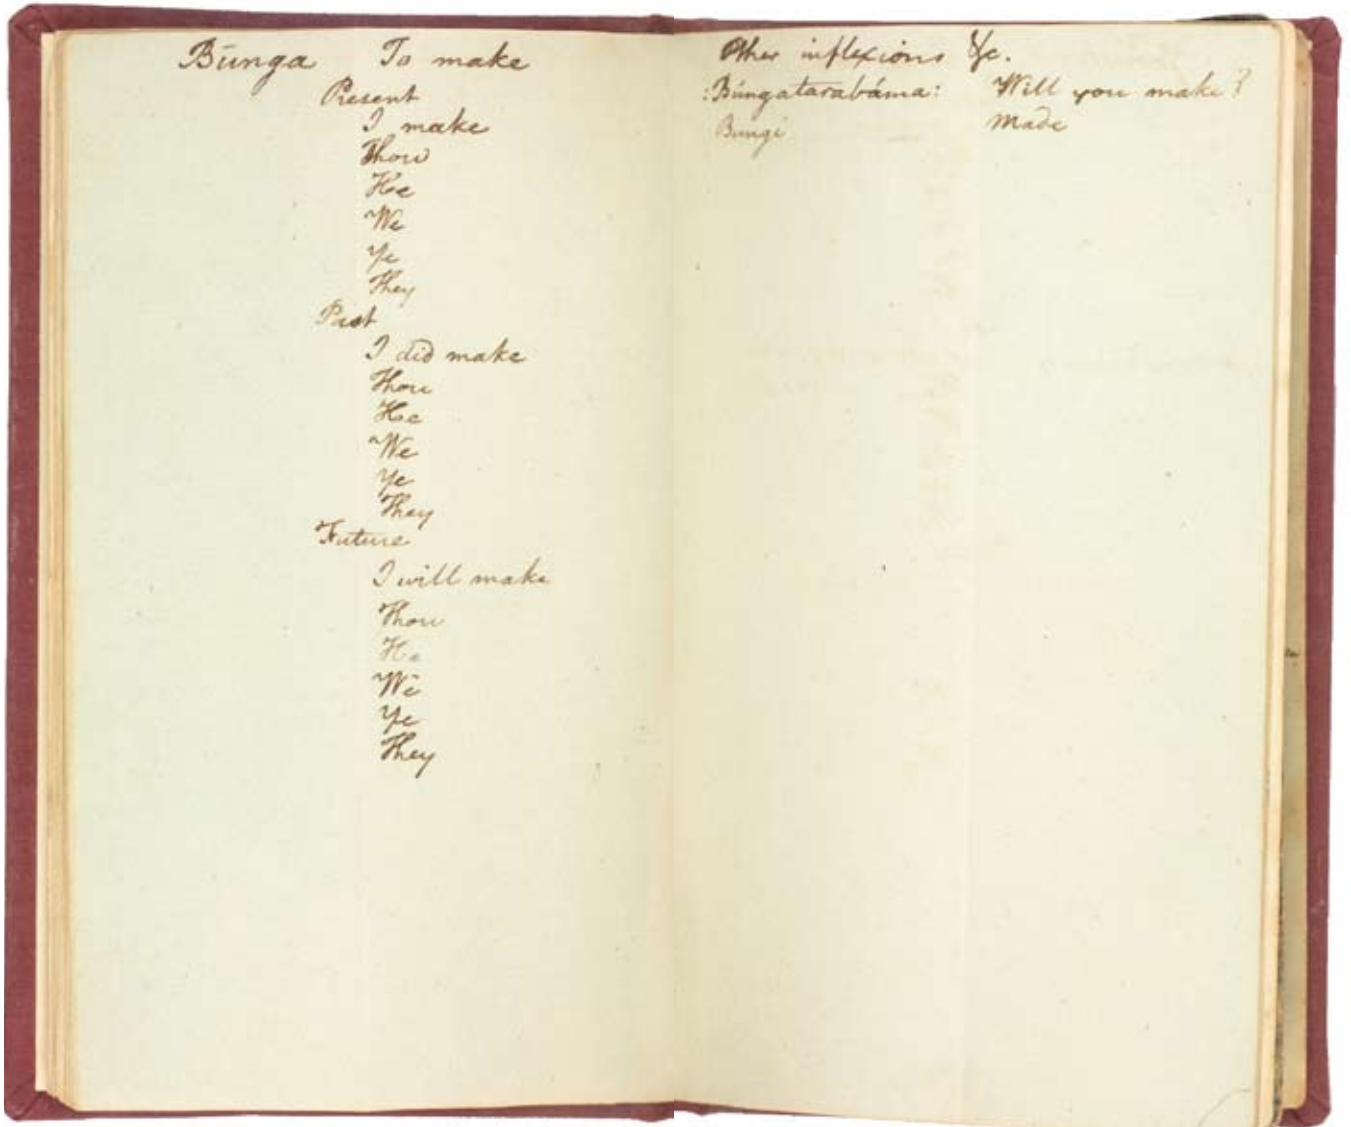 Būnga To make
Present
I make
Thou
He
We
Ye
They
Past
I did make
Thou
He
We
Ye
They
Future
I will make
Thou
He
We
Ye
They
Other inflexions &c.
:Búngatarabáma: Will you make?
Bungi Made